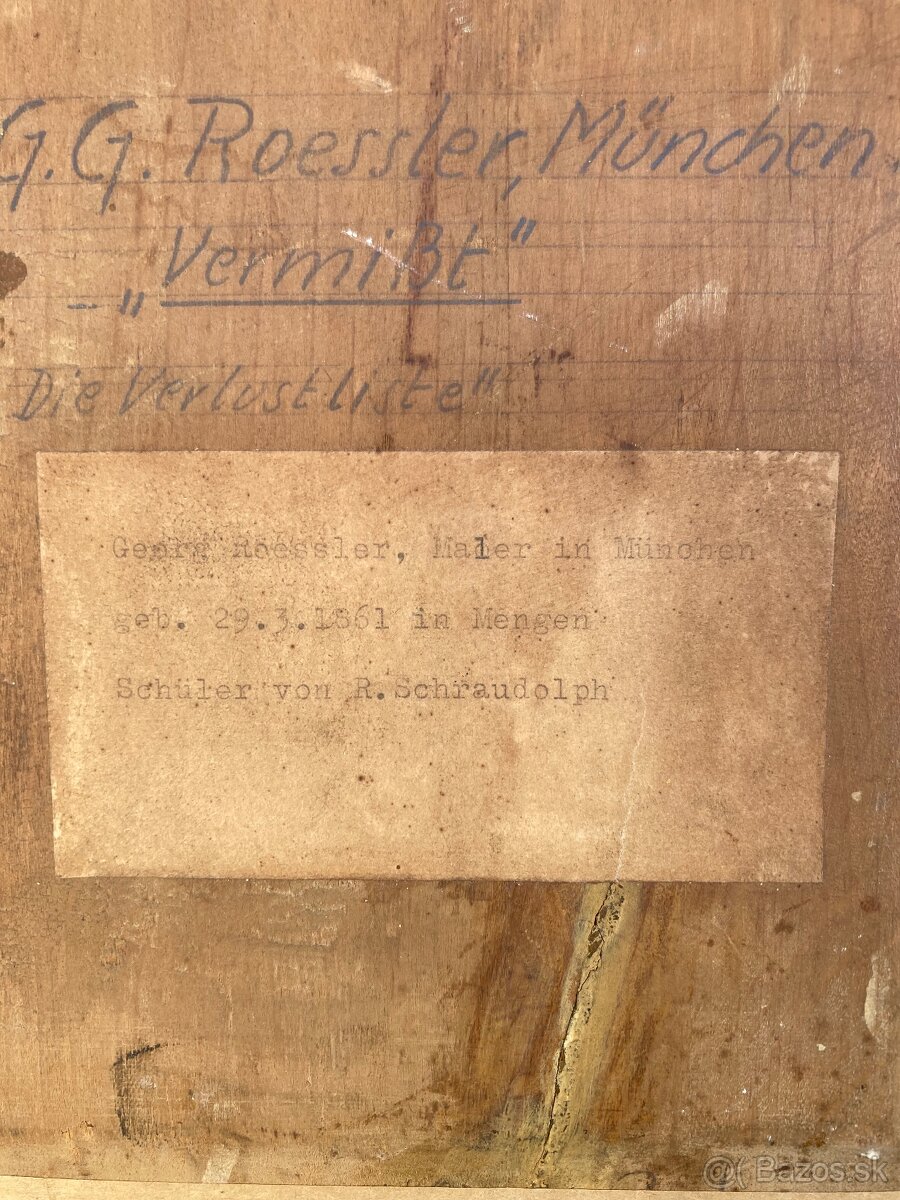 G.G. Roessler, München.
– „Vermißt"
Die Verlustliste"
Georg Roessler, Maler in München
geb. 29.3.1861 in Mengen
Schüler von R.Schraudolph
@( Bazos.sk